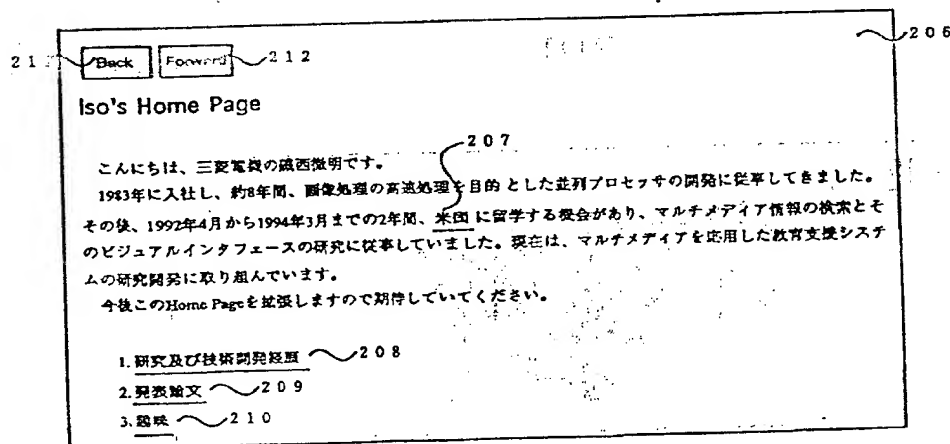 206
21 Back Forward 212
Iso's Home Page
207
こんにちは、三菱電機の磯西徹明です。
1983年に入社し、約8年間、画像処理の高速処理を目的とした並列プロセッサの開発に従事してきました。
その後、1992年4月から1994年3月までの2年間、米国に留学する機会があり、マルチメディア情報の検索とそ
のビジュアルインタフェースの研究に従事していました。現在は、マルチメディアを応用した教育支援システ
ムの研究開発に取り組んでいます。
今後このHome Pageを拡張しますので期待していてください。
1. 研究及び技術開発経歴 208
2. 発表論文 209
3. 趣味 210